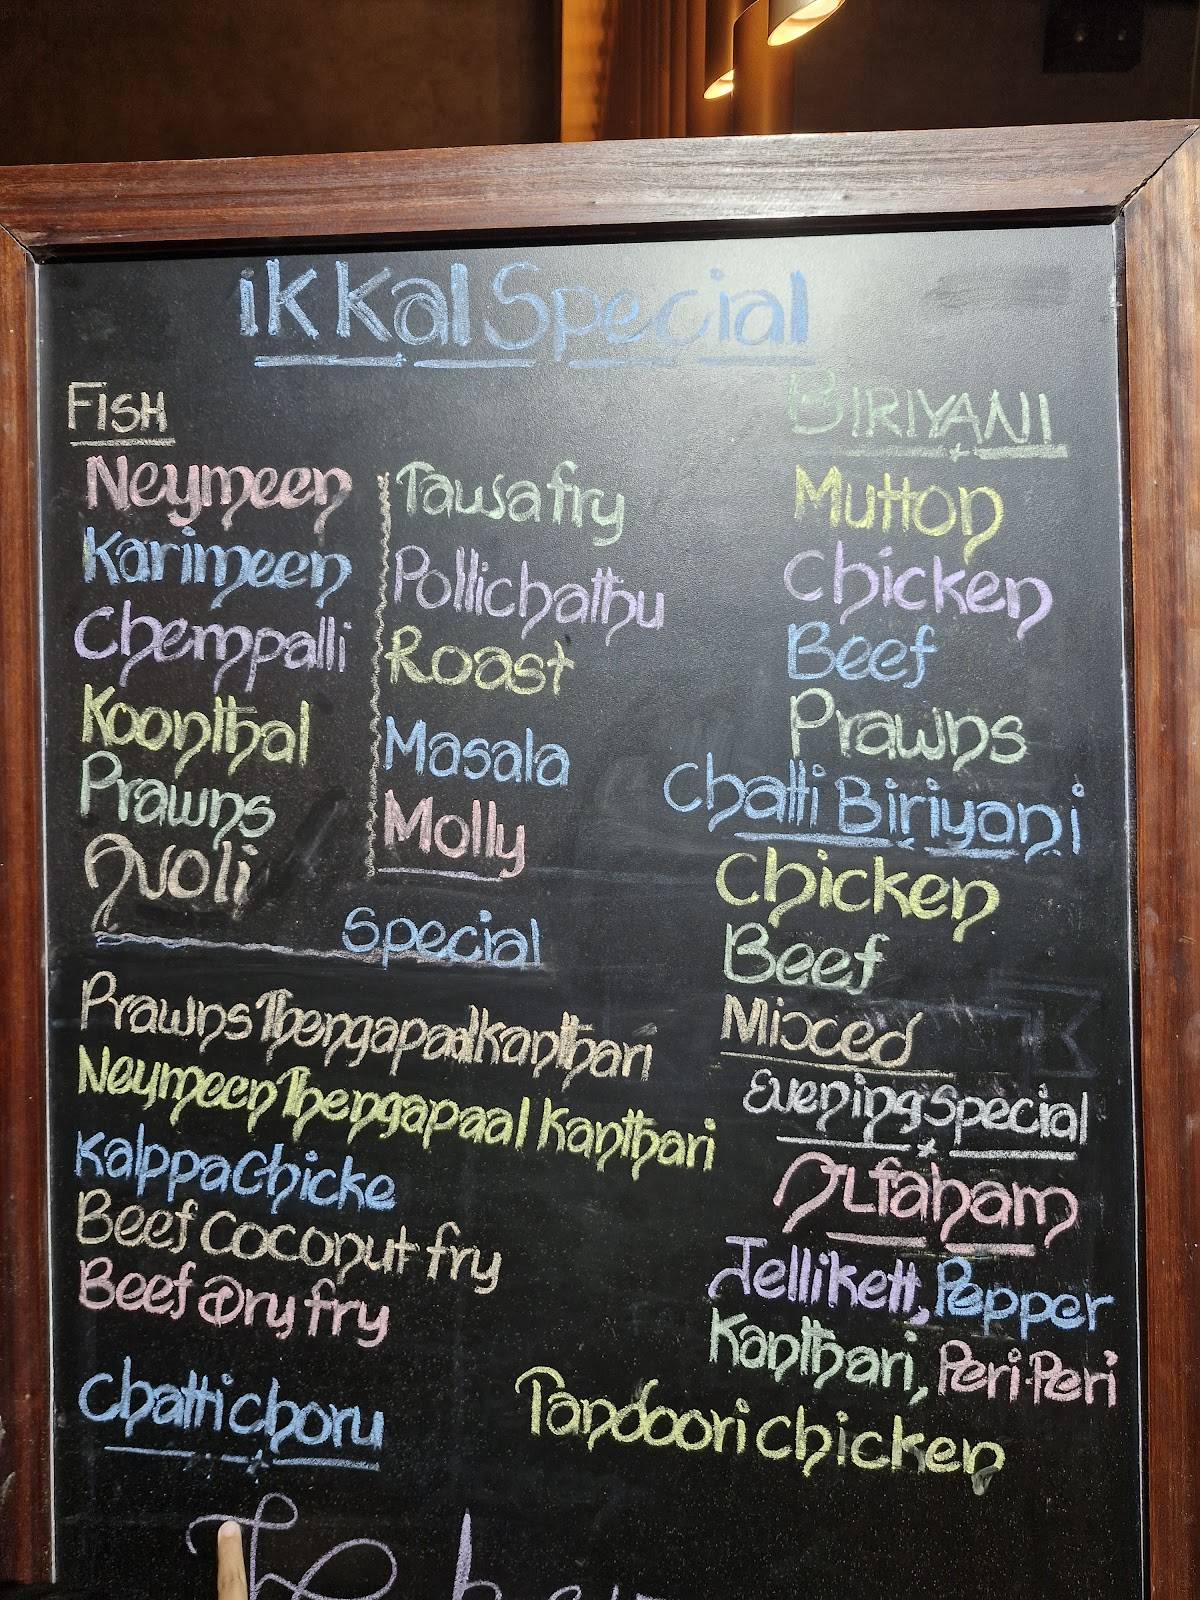 ikkal Special
FISH
Neymeen
Karimeen
Chempalli
Koonthal
Prawns
Avoli
Tawsa fry
Pollichathu
Roast
Masala
Molly
Special
Prawns Thengapaalkanthari
Neymeen Thengapaal kanthari
KalppaChicke
Beef Coconut fry
Beef Dry fry
Chatti choru
BIRIYANI
Mutton
Chicken
Beef
Prawns
Chatti Biriyani
Chicken
Beef
Mixced
Evening Special
ALfaham
Jellikett, Pepper
Kanthari, Peri-Peri
Tandoori chicken